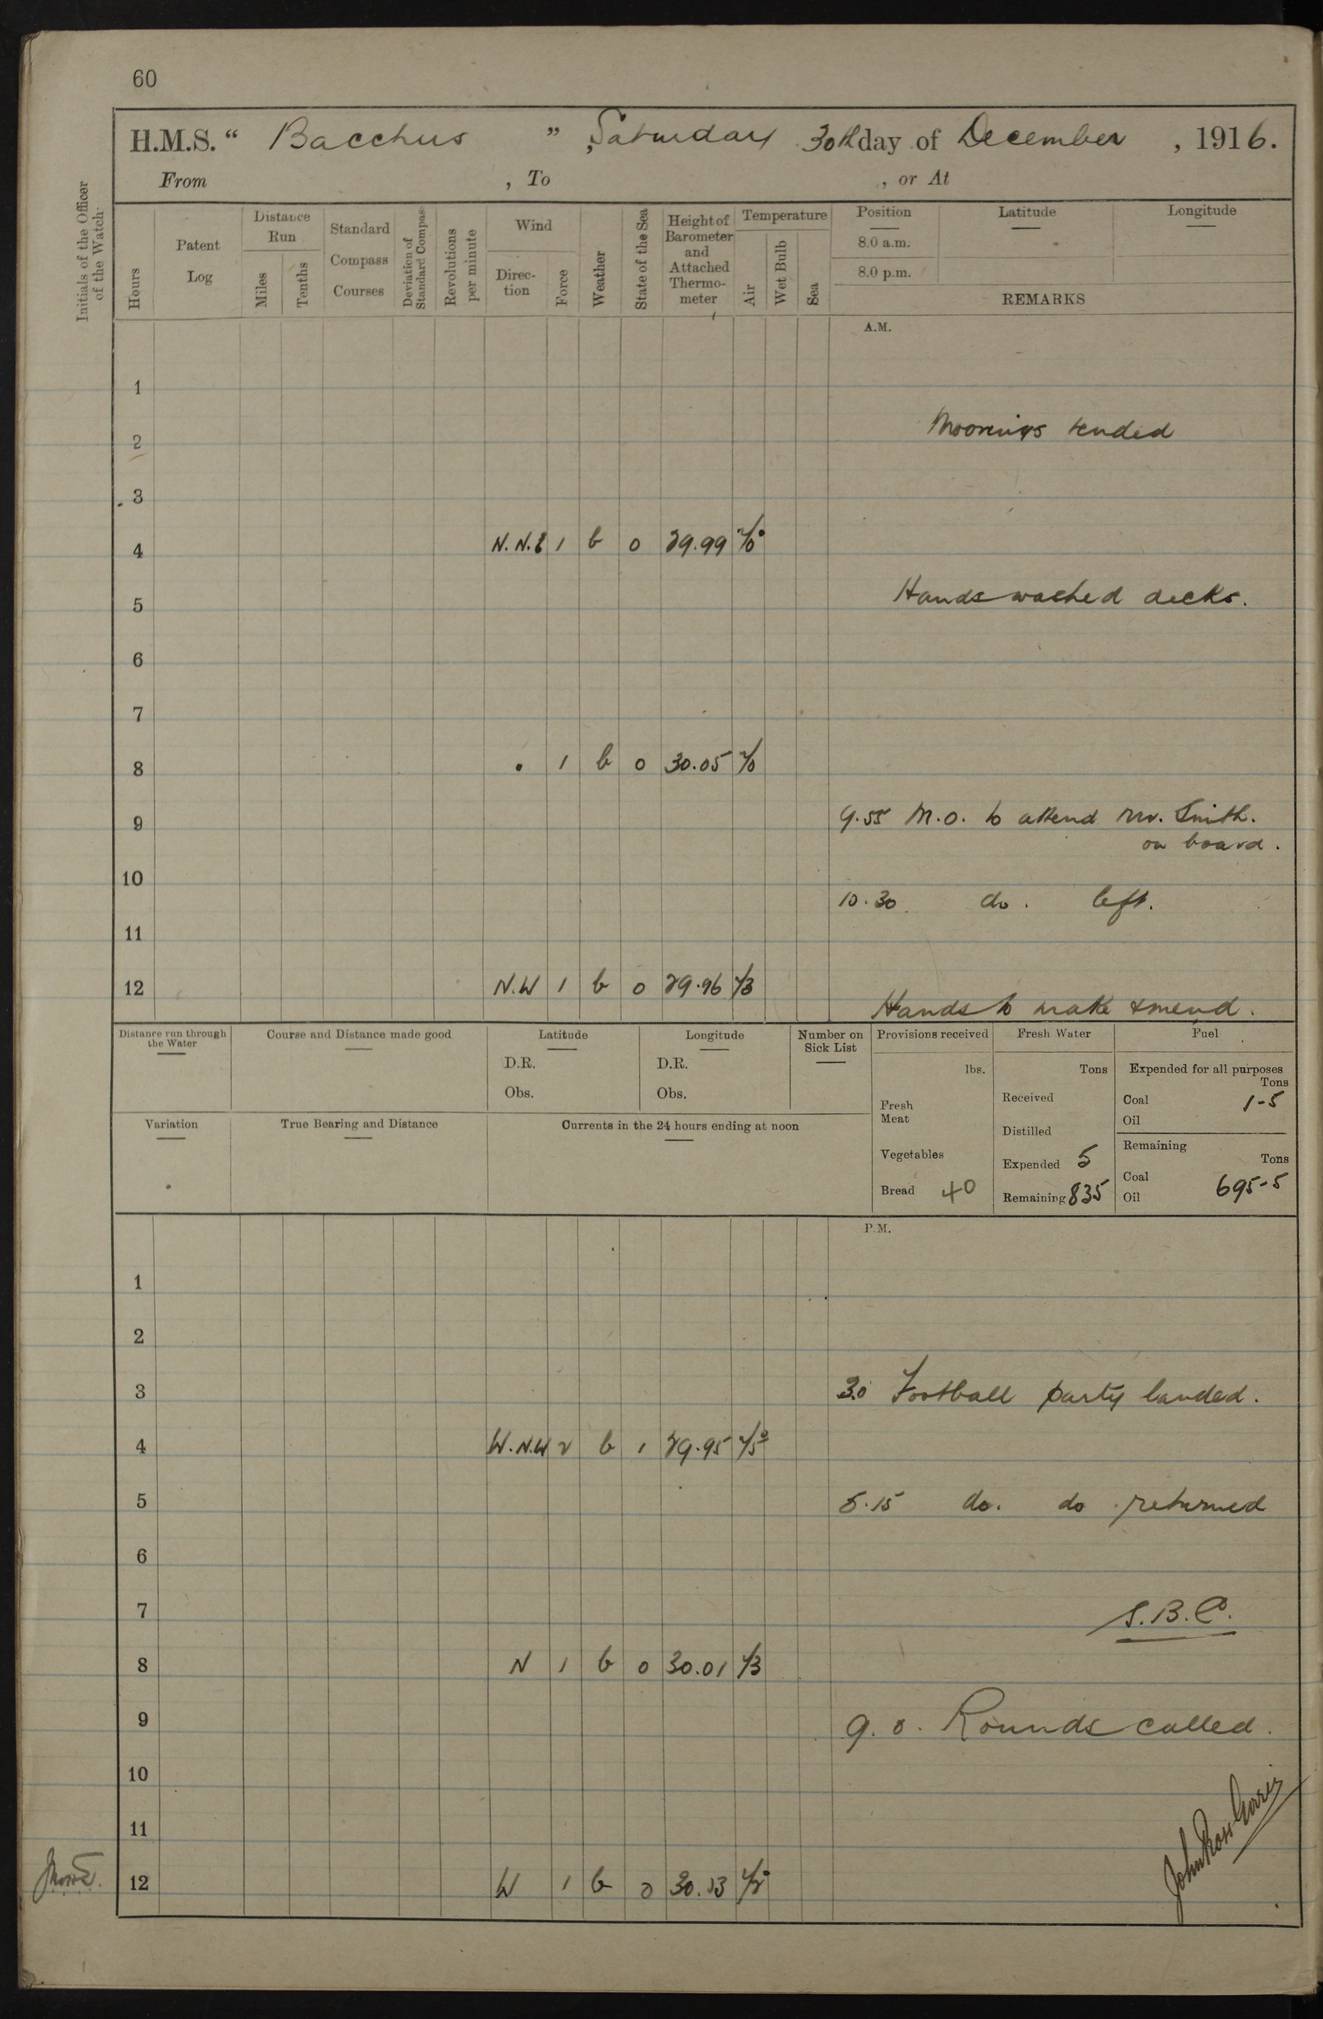 60
H.M.S. “ Bacchus ” , Saturday 30th day of December , 1916.
From , To , or At
Initials of the Officer of the Watch
Hours
Patent Log
Distance Run
Miles
Tenths
Standard Compass Courses
Deviation of Standard Compass
Revolutions per minute
Wind
Direction
Force
Weather
State of the Sea
Height of Barometer and Attached Thermometer
Temperature
Air
Wet Bulb
Sea
Position
8.0 a.m.
8.0 p.m.
Latitude
Longitude
REMARKS
A.M.
1
Moorings tended
2
3
4 N.N.E 1 b 0 29.99
Hands washed decks.
5
6
7
8 1 b 0 30.05
9.55 M.O. to attend Mr. Smith.
9
on board.
10
10.30 do. left.
11
12 N.W 1 b 0 29.96
Hands to make & mend.
Distance run through the Water
Course and Distance made good
Latitude
D.R.
Obs.
Longitude
D.R.
Obs.
Number on Sick List
Provisions received
lbs.
Fresh Meat
Vegetables
Bread 40
Fresh Water
Tons
Received
Distilled
Expended 5
Remaining 835
Fuel
Expended for all purposes
Tons
Coal 1-5
Oil
Remaining
Tons
Coal 695-5
Oil
Variation
True Bearing and Distance
Currents in the 24 hours ending at noon
P.M.
1
2
3 3.0 Football party landed.
4 W.N.W 2 b 1 29.95
5 5.15 do. do returned
6
7 S.B.C.
8 N 1 b 0 30.01
9 9.0. Rounds called.
10
11
12 W 1 b 0 30.03
John Ross